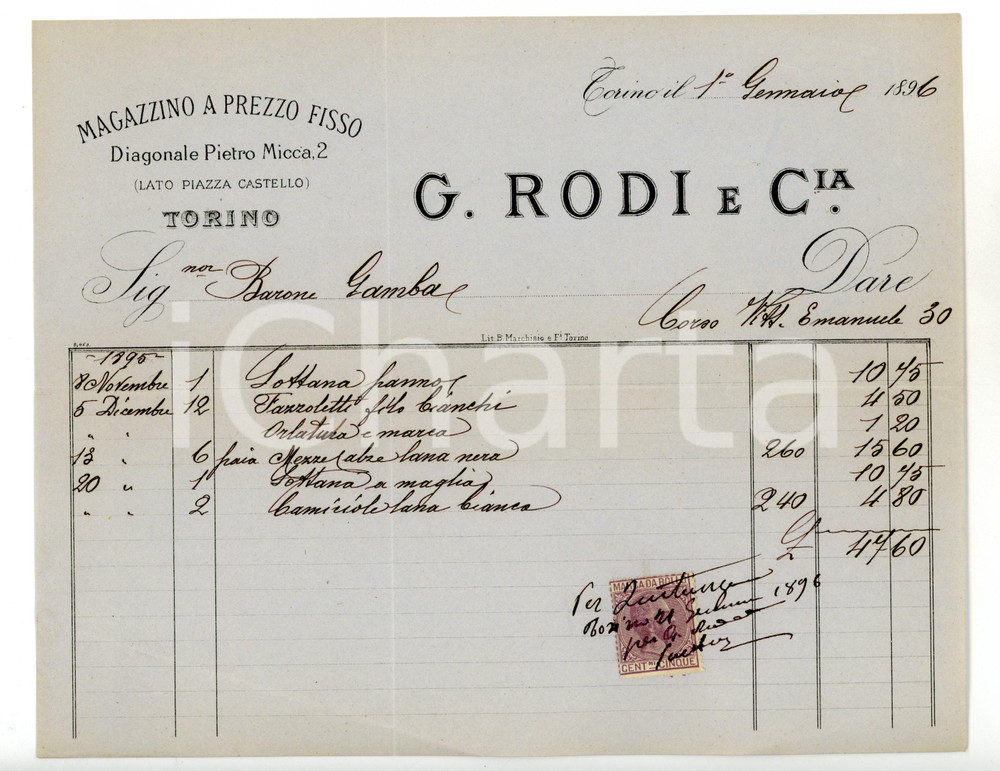 MAGAZZINO A PREZZO FISSO
Diagonale Pietro Micca, 2
(LATO PIAZZA CASTELLO)
TORINO
Torino il 1º Gennaio 1896
G. RODI E CIA.
Sig nor Barone Gamba Dare
Corso Vitt. Emanuele 30
Lit. B. Marchisio e Fi. Torino
1895
8 Novembre 1 Sottana panno 10 45
5 Dicembre 12 Fazzoletti filo bianchi 4 50
" " Orlatura e marca 1 20
13 " 6 paia Mezze calze lana nera 260 15 60
20 " 1 Sottana a maglia 10 45
" " 2 Camiciole lana bianca 240 4 80
£ 47 60
MARCA DA BOLLO
Per
Torino 21 1896
per G.
CENT.MI CINQUE
iCharta